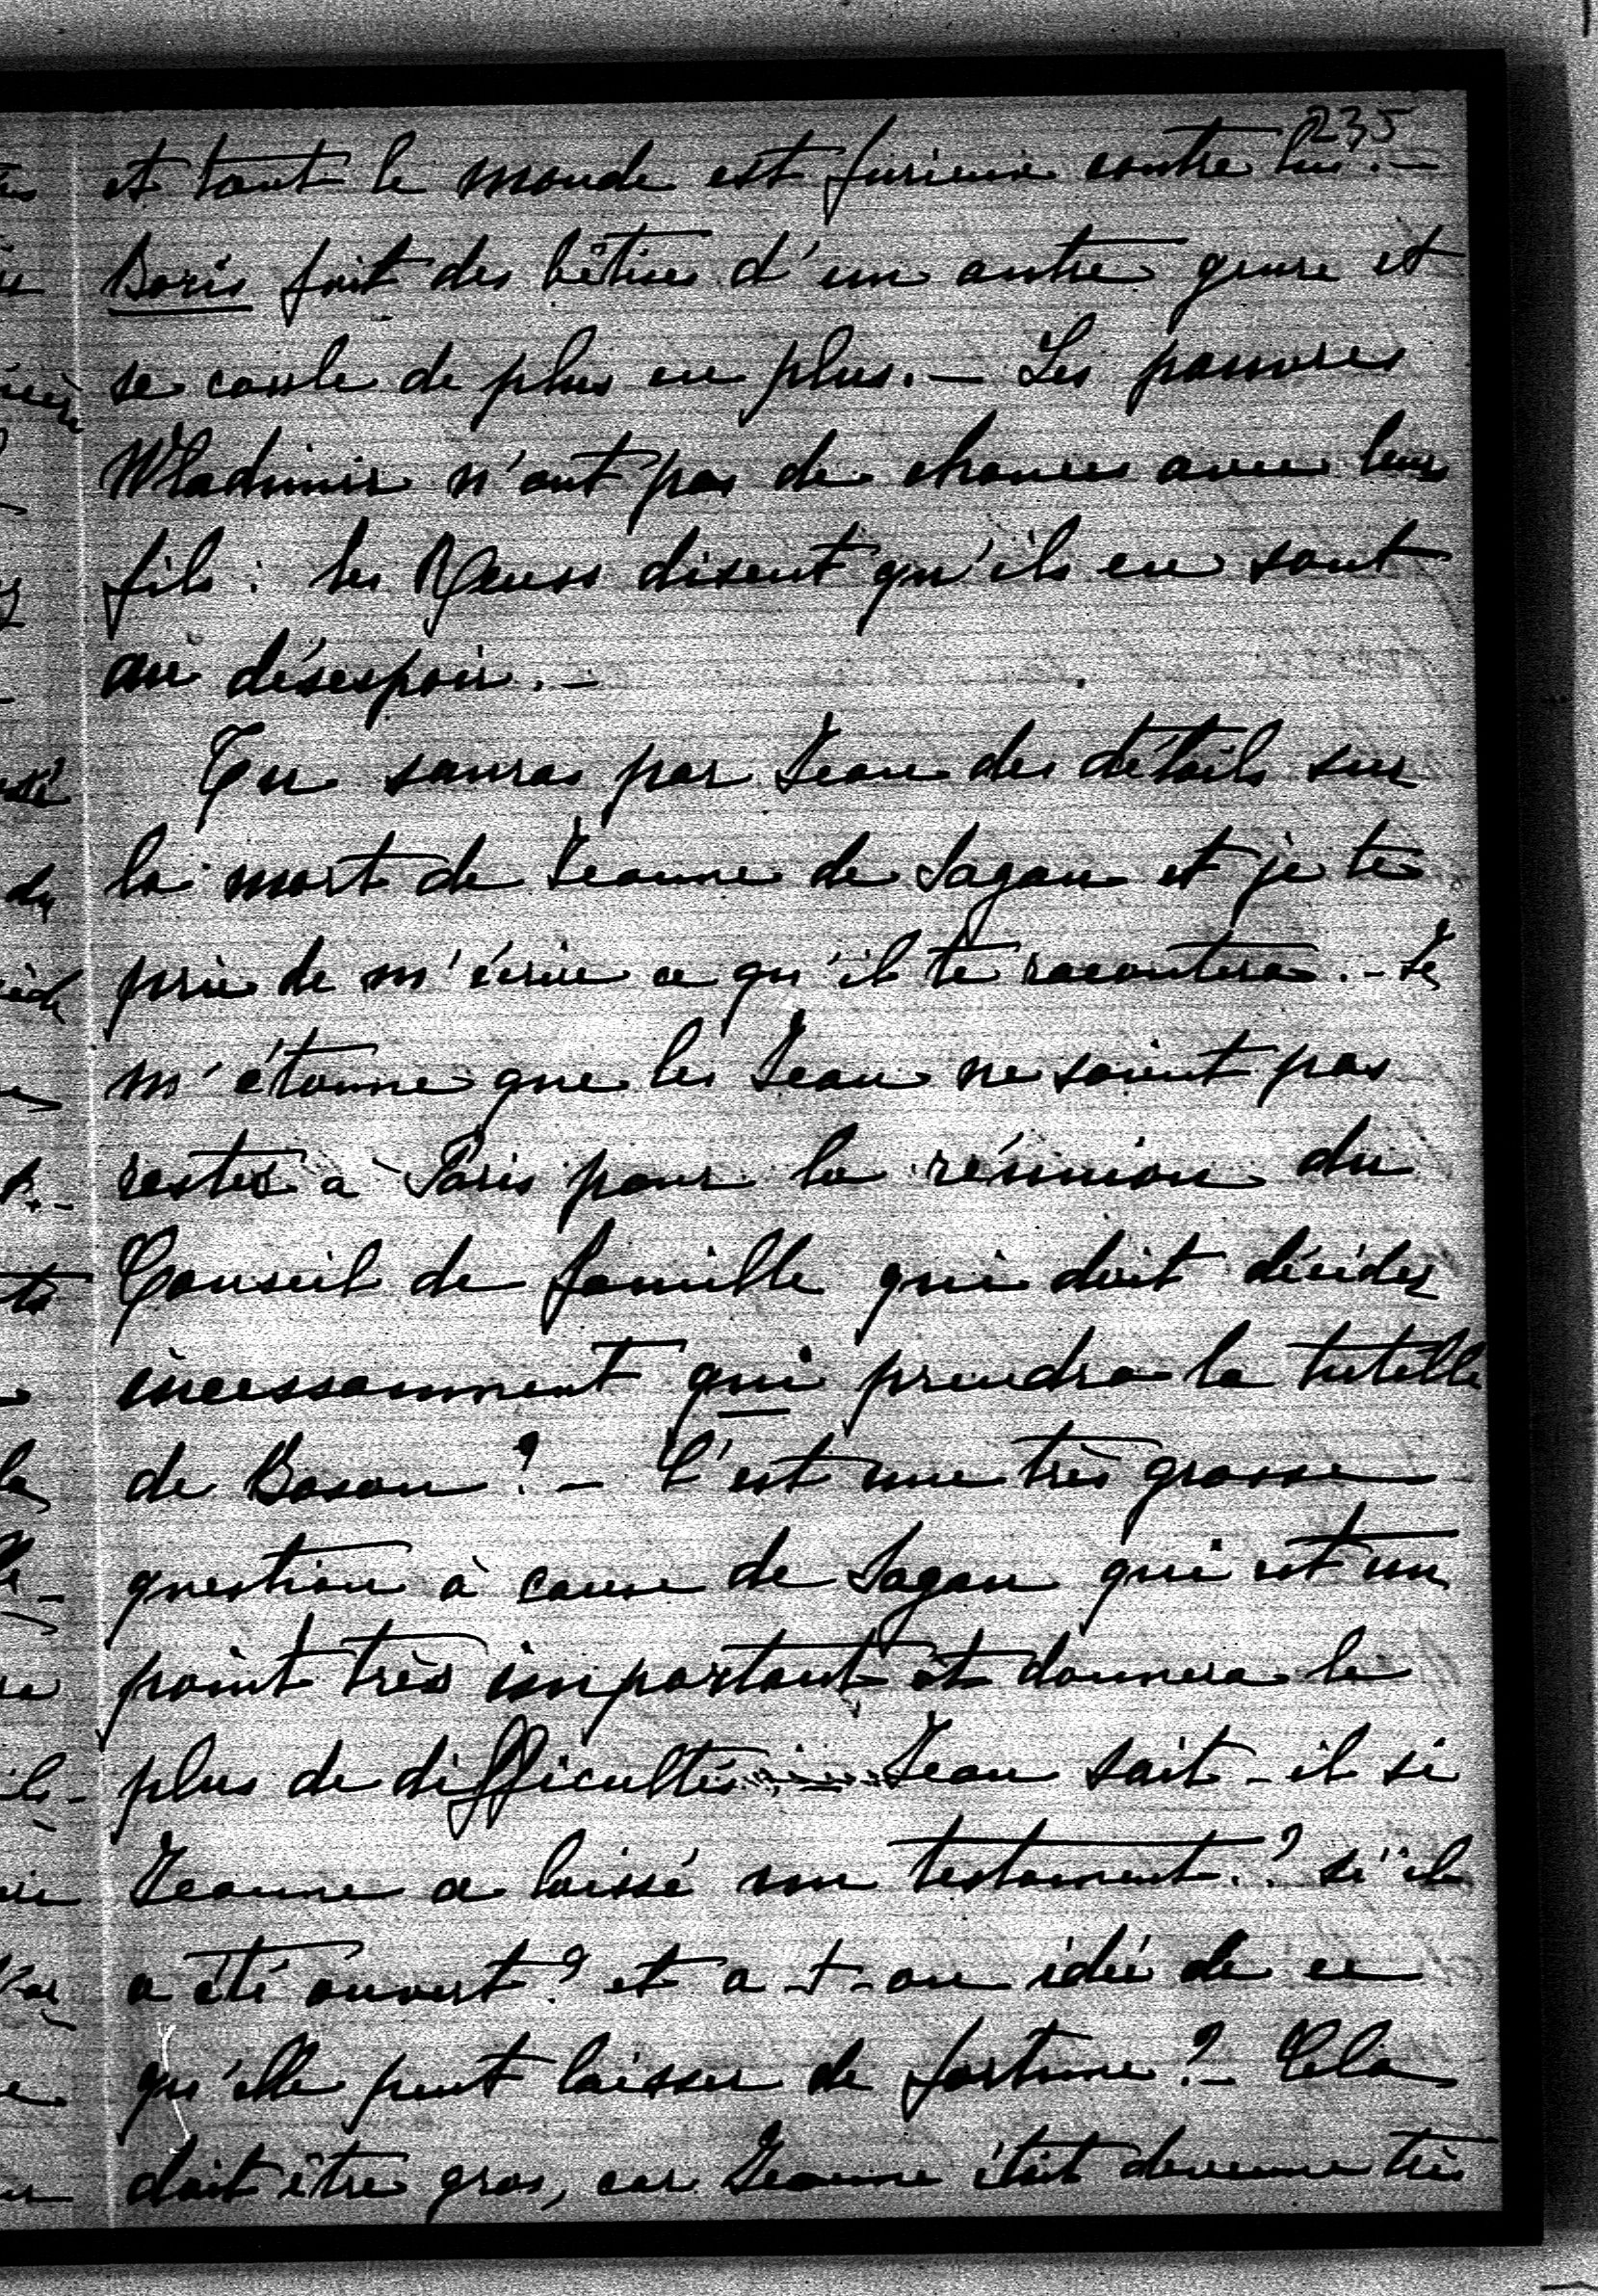 235
et tout le monde est furieux contre lui. —
Boris fait des bêtises d'un autre genre et
se coule de plus en plus. — Les pauvres
Wladimir n'ont pas de chance avec leurs
fils : les Reuss disent qu'ils en sont
au désespoir. —
Tu sauras par Jean des détails sur
la mort de Jeanne de Sagan et je te
prie de m'écrire ce qu'il te racontera. — Je
m'étonne que les Jean ne soient pas
restés à Paris pour la réunion du
Conseil de famille qui doit décider
incessamment qui prendra la tutelle
de Boson ? — C'est une très grosse
question à cause de Sagan qui est un
point très important et donnera le
plus de difficultés Jean sait-il si
Jeanne a laissé un testament ? s'il
a été ouvert ? et a-t-on idée de ce
qu'elle peut laisser de fortune ? — Cela
doit être gros, car Jeanne était devenue très